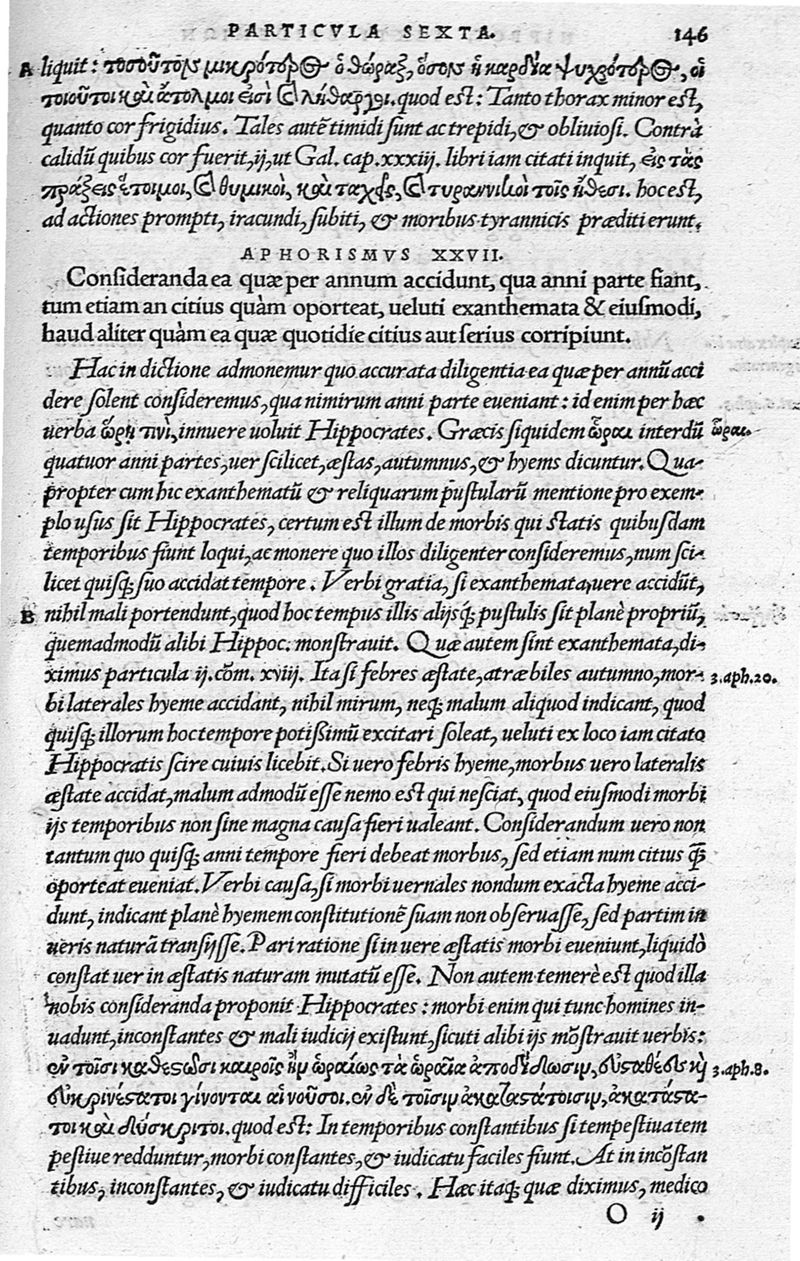 PARTICVLA SEXTA. 146
A liquit: τοσούτοις μικρότερος ὁ θώραξ, ὅσοις ἡ καρδία ψυχρότερος, οἱ
τοιοῦτοι καὶ ἄτολμοι εἰσὶ καὶ λήθαργοι. quod est: Tanto thorax minor est,
quanto cor frigidius. Tales autē timidi sunt ac trepidi, & obliuiosi. Contrà
calidū quibus cor fuerit, ij, ut Gal. cap. xxxiij. libri iam citati inquit, εἰς τὰς
πράξεις ἕτοιμοι, καὶ θυμικοὶ, καὶ ταχεῖς, καὶ τυραννικοὶ τοῖς ἤθεσι. hoc est,
ad actiones prompti, iracundi, subiti, & moribus tyrannicis præditi erunt.
APHORISMVS XXVII.
Consideranda ea quæ per annum accidunt, qua anni parte fiant,
tum etiam an citius quàm oporteat, ueluti exanthemata & eiusmodi,
haud aliter quàm ea quæ quotidie citius aut serius corripiunt.
Hac in dictione admonemur quo accurata diligentia ea quæ per annū acci
dere solent consideremus, qua nimirum anni parte eueniant: id enim per hæc
uerba ὥρῃ τινὶ, innuere uoluit Hippocrates. Græcis siquidem ὧραι interdū ὧραι.
quatuor anni partes, uer scilicet, æstas, autumnus, & hyems dicuntur. Qua-
propter cum hic exanthematū & reliquarum pustularū mentione pro exem-
plo usus sit Hippocrates, certum est illum de morbis qui statis quibusdam
temporibus fiunt loqui, ac monere quo illos diligenter consideremus, num sci-
licet quisq; suo accidat tempore. Verbi gratia, si exanthemata uere accidūt,
B nihil mali portendunt, quod hoc tempus illis alijsq; pustulis sit planè propriū,
quemadmodū alibi Hippoc. monstrauit. Quæ autem sint exanthemata, di-
ximus particula ij. cōm. xviij. Ita si febres æstate, atræ biles autumno, mor- 3. aph. 20.
bi laterales hyeme accidant, nihil mirum, neq; malum aliquod indicant, quod
quisq; illorum hoc tempore potißimū excitari soleat, ueluti ex loco iam citato
Hippocratis scire cuiuis licebit. Si uero febris hyeme, morbus uero lateralis
æstate accidat, malum admodū esse nemo est qui nesciat, quod eiusmodi morbi
ijs temporibus non sine magna causa fieri ualeant. Considerandum uero non
tantum quo quisq; anni tempore fieri debeat morbus, sed etiam num citius q̃
oporteat eueniat. Verbi causa, si morbi uernales nondum exacta hyeme acci-
dunt, indicant planè hyemem constitutionē suam non obseruasse, sed partim in
ueris naturā transijsse. Pari ratione si in uere æstatis morbi eueniunt, liquidò
constat uer in æstatis naturam mutatū esse. Non autem temerè est quod illa
nobis consideranda proponit Hippocrates: morbi enim qui tunc homines in-
uadunt, inconstantes & mali iudicij existunt, sicuti alibi ijs mōstrauit uerbis:
ἐν τοῖσι καθεστῶσι καιροῖς ἢν ὡραίως τὰ ὡραῖα ἀποδιδῶσιν, εὐσταθέες καὶ 3. aph. 8.
εὐκρινέστατοι γίνονται αἱ νοῦσοι. ἐν δὲ τοῖσιν ἀκαταστάτοισιν, ἀκατάστα-
τοι καὶ δύσκριτοι. quod est: In temporibus constantibus si tempestiua tem
pestiue redduntur, morbi constantes, & iudicatu faciles fiunt. At in incōstan
tibus, inconstantes, & iudicatu difficiles. Hæc itaq; quæ diximus, medico
O ij